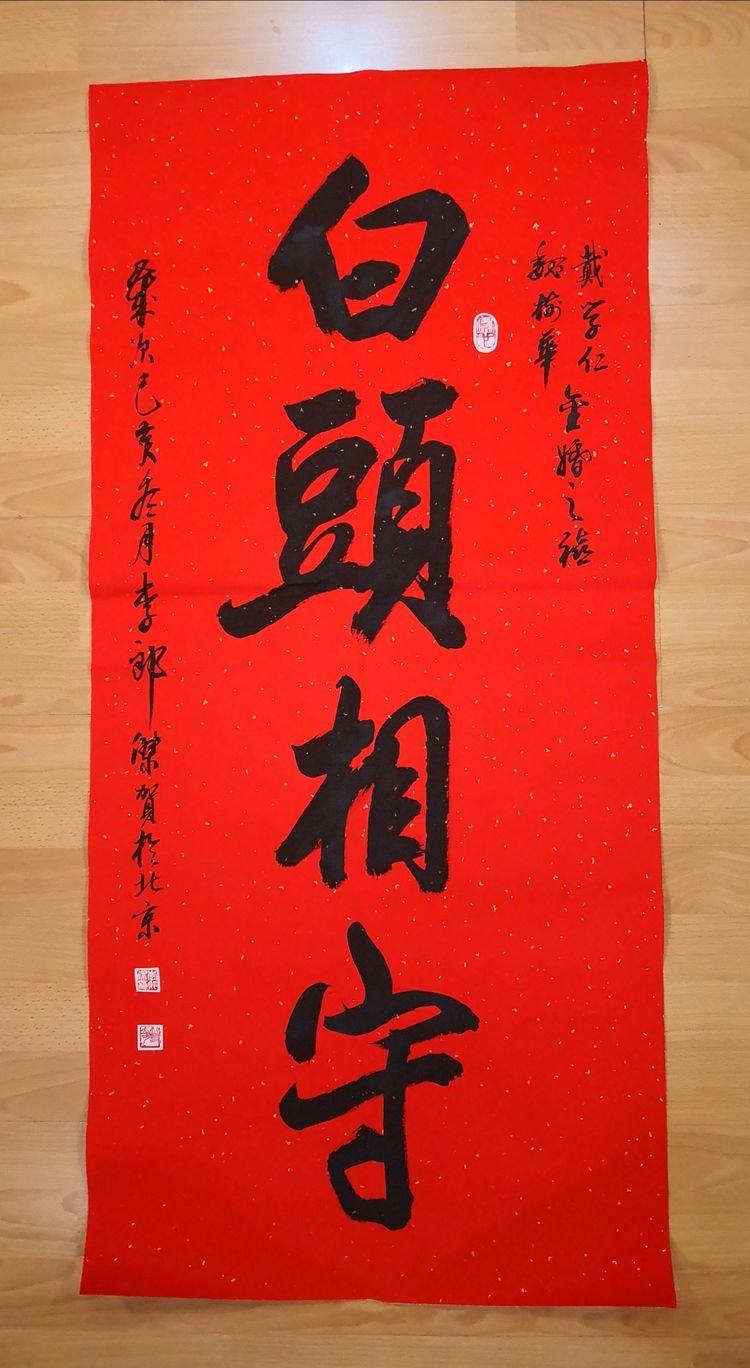 戴学仁
魏華
金婚之禧
白頭相守
歲次己亥冬月李郎傑賀於北京